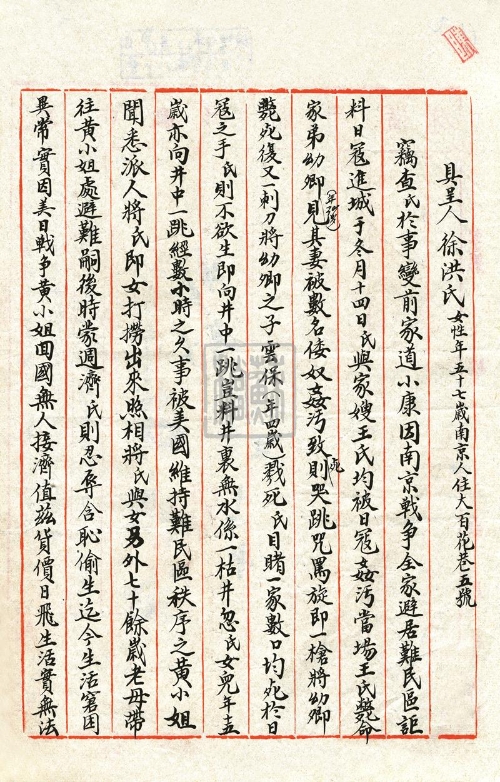 具呈人徐洪氏女性年五十七歲南京人住大百花巷五號
竊查氏於事變前家道小康因南京戰争全家避居難民區詎
料日寇進城于冬月十四日氏與家嫂王氏均被日寇姦汚當場王氏斃命
家弟幼卿見其妻被數名倭奴姦汚致死則哭跳咒罵旋即一槍將幼卿
斃死復又一刺刀將幼卿之子雲保(年四歲)戮死氏目睹一家數口均死於日
寇之手氏則不欲生即向井中一跳豈料井裏無水係一枯井忽氏女兒年五
歲亦向井中一跳經數小時之久事被美國維持難民區秩序之黄小姐
聞悉派人將氏即女打撈出來照相將氏與女另外七十餘歲老母帶
往黄小姐處避難嗣後時蒙週濟氏則忍辱含恥偷生迄今生活窘困
異常實因美日戰争黄小姐囬國無人接濟值兹貨價日飛生活實無法